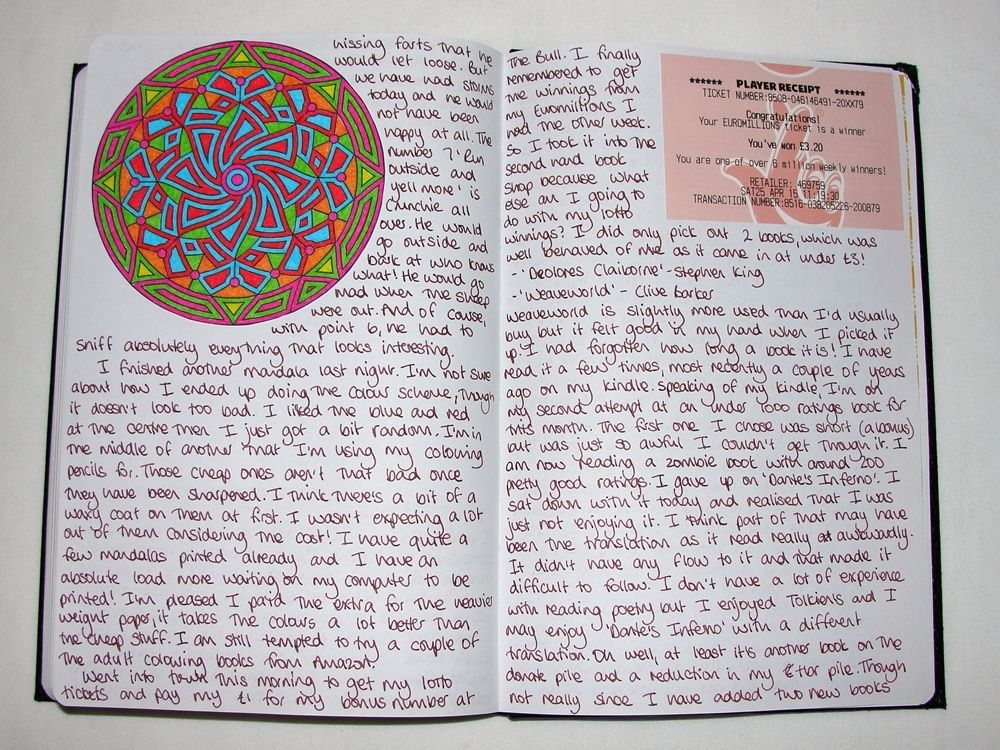 hissing farts that he
would let loose. But
we have had storms
today and he would
not have been
happy at all. The
number 7 'Run
outside and
yell more' is
Munchie all
over. He would
go outside and
bark at who knows
what! He would go
mad when the sheep
were out. And of course,
with point 6, he had to
sniff absolutely everything that looks interesting.
I finished another mandala last night. I'm not sure
about how I ended up doing the colour scheme, though
it doesn't look too bad. I liked the blue and red
at the centre then I just got a bit random. I'm in
the middle of another that I'm using my colouring
pencils for. Those cheap ones aren't that bad once
they have been sharpened. I think there's a bit of a
waxy coat on them at first. I wasn't expecting a lot
out of them considering the cost! I have quite a
few mandalas printed already and I have an
absolute load more waiting on my computer to be
printed! I'm pleased I paid the extra for the heavier
weight paper, it takes the colours a lot better than
the cheap stuff. I am still tempted to try a couple of
the adult colouring books from Amazon.
Went into town this morning to get my lotto
tickets and pay my £1 for my bonus number at
The Bull. I finally
remembered to get
the winnings from
my Euromillions I
had the other week.
So I took it into the
second hand book
shop because what
else am I going to
do with my lotto
winnings? I did only pick out 2 books, which was
well behaved of me as it came in at under £3!
- 'Deolores Claiborne' - Stephen King
- 'Weaveworld' - Clive Barker
Weaveworld is slightly more used than I'd usually
buy but it felt good in my hand when I picked it
up. I had forgotten how long a book it is! I have
read it a few times, most recently a couple of years
ago on my kindle. Speaking of my kindle, I'm on
my second attempt at an under 1000 ratings book for
this month. The first one I chose was short (a bonus)
but was just so awful I couldn't get through it. I
am now reading a zombie book with around 200
pretty good ratings. I gave up on 'Dante's Inferno'. I
sat down with it today and realised that I was
just not enjoying it. I think part of that may have
been the translation as it read really awkwardly.
It didn't have any flow to it and that made it
difficult to follow. I don't have a lot of experience
with reading poetry but I enjoyed Tolkiens and I
may enjoy 'Dante's Inferno' with a different
translation. Oh well, at least it's another book on the
donate pile and a reduction in my tbr pile. Though
not really since I have added two new books
****** PLAYER RECEIPT ******
TICKET NUMBER:9508-046146491-20XX79
Congratulations!
Your EUROMILLIONS ticket is a winner
You've won £3.20
You are one of over 6 million weekly winners!
RETAILER: 469759
SAT25 APR 15 11:19:30
TRANSACTION NUMBER:8516-038205226-200879